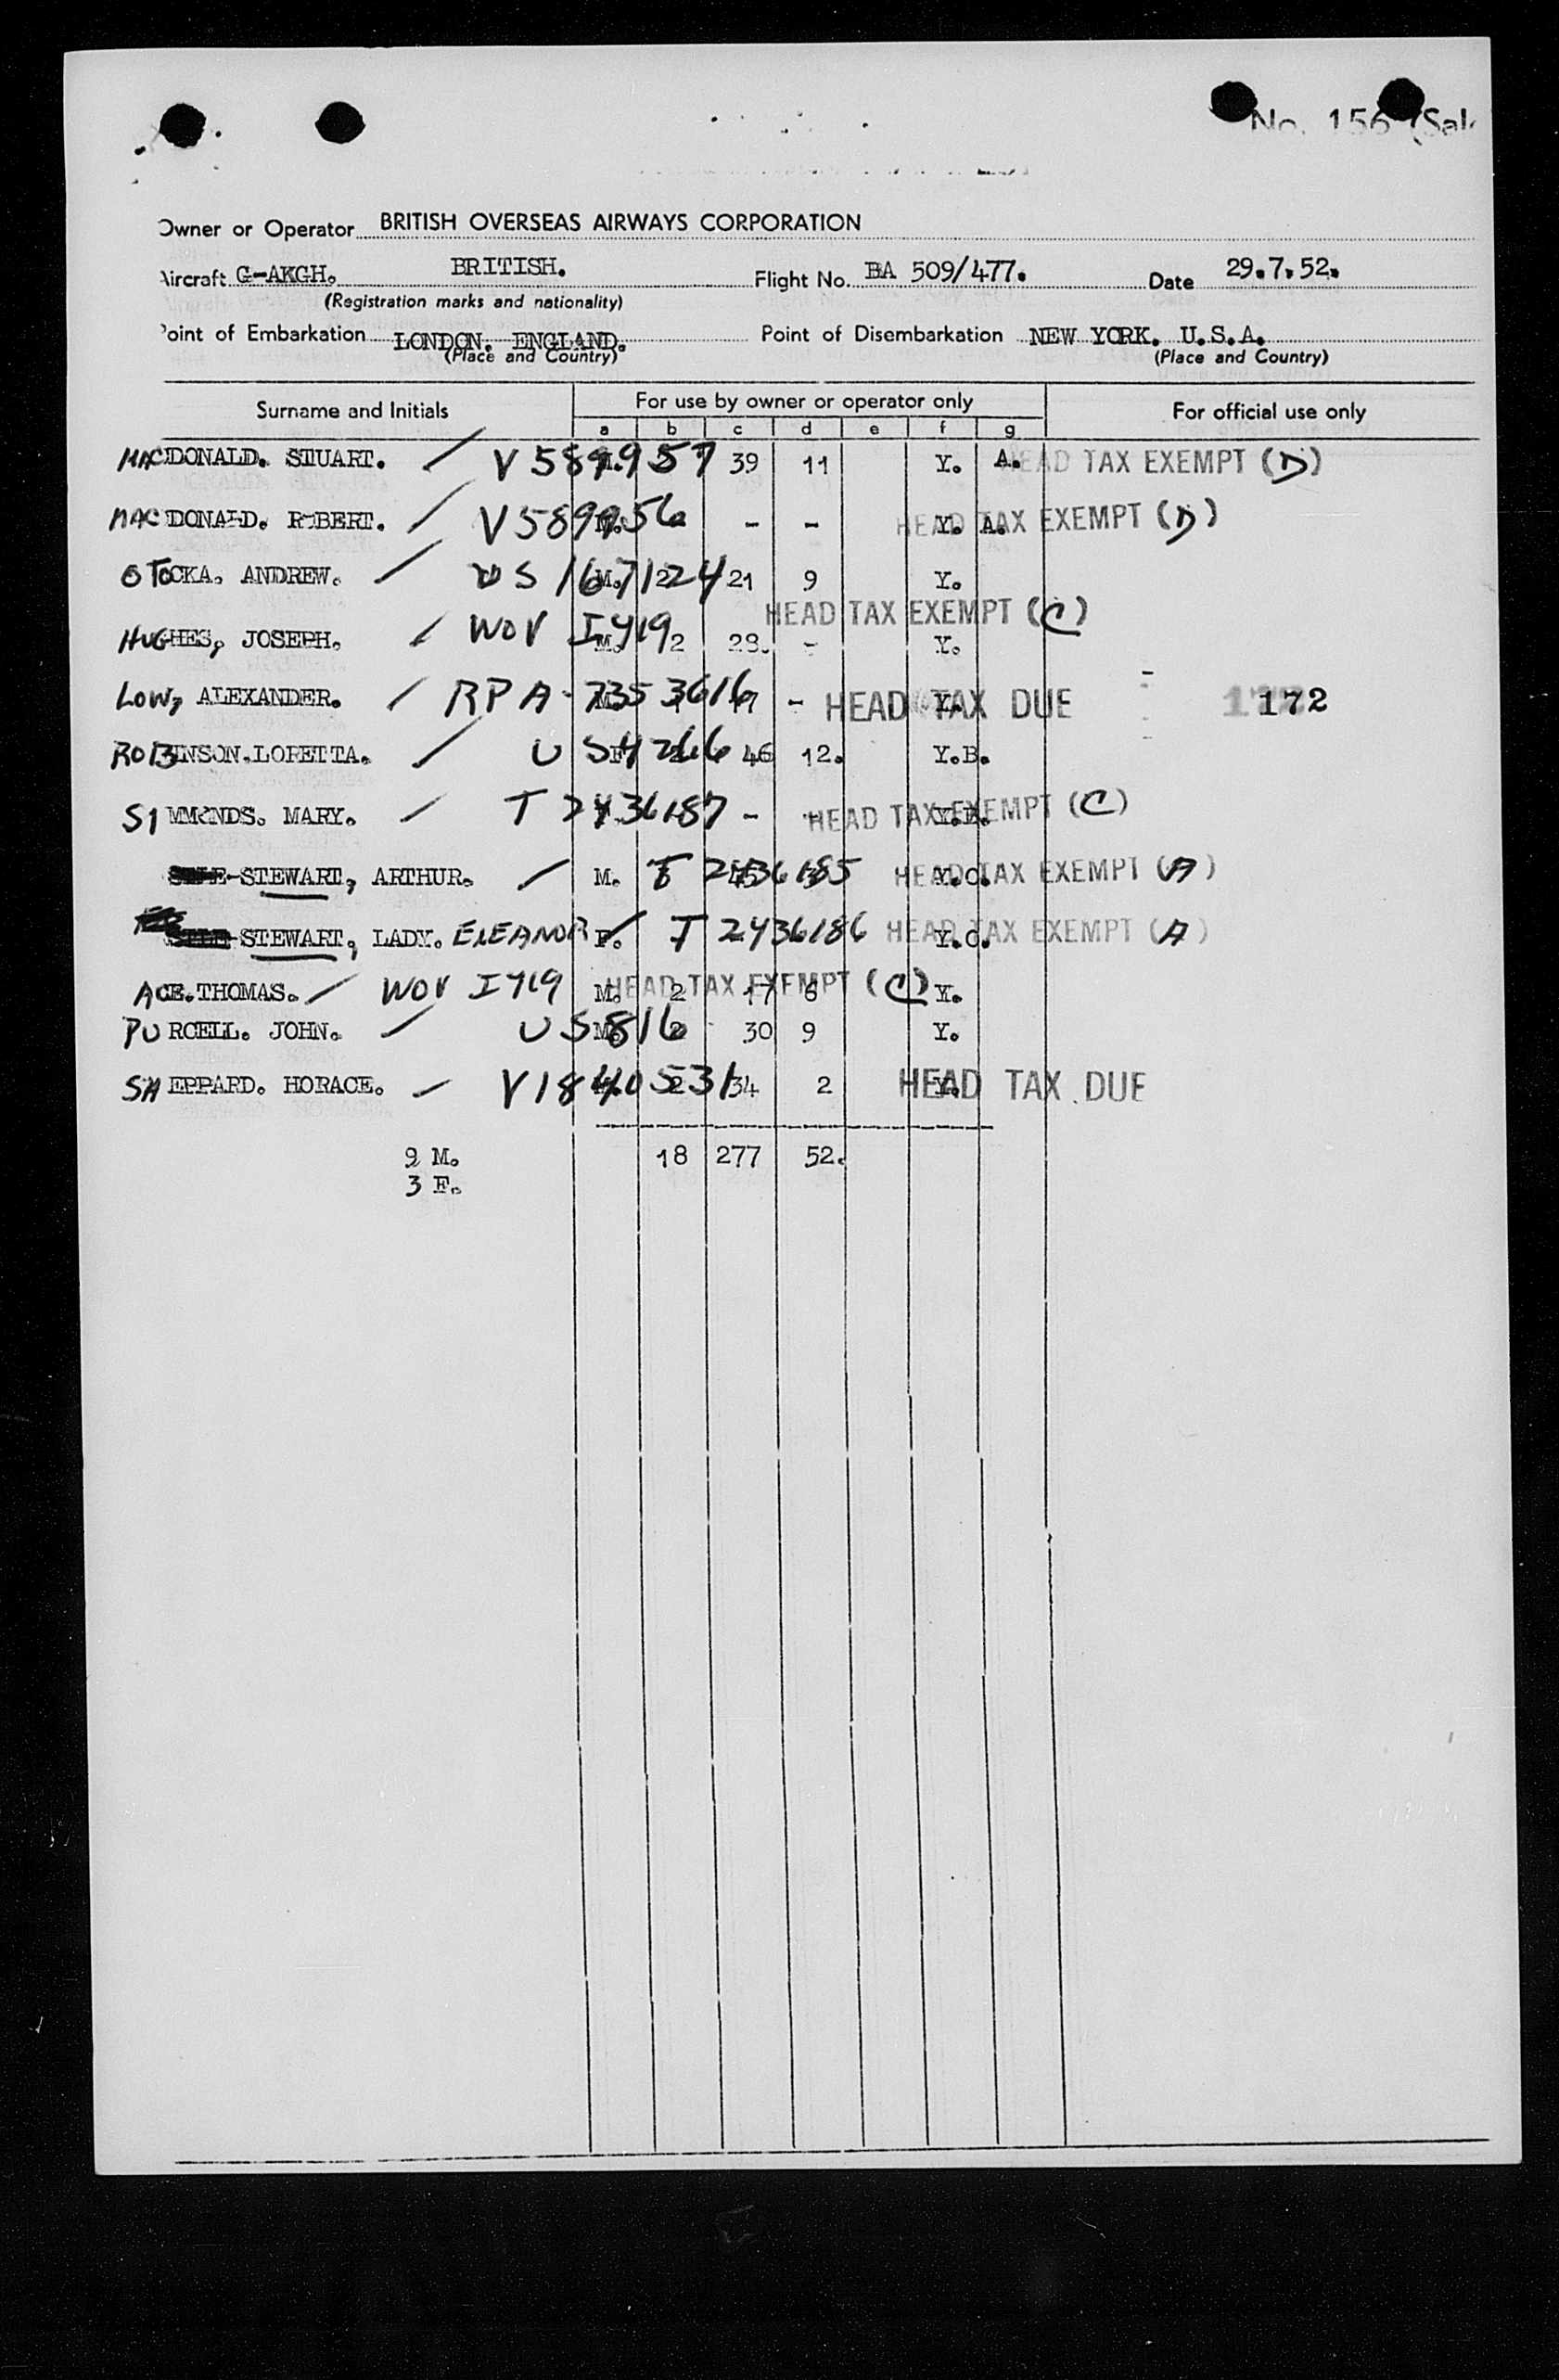 No. 156 (Sal
Owner or Operator BRITISH OVERSEAS AIRWAYS CORPORATION
Aircraft G-AKGH. BRITISH. Flight No. BA 509/477. Date 29.7.52.
(Registration marks and nationality)
Point of Embarkation LONDON. ENGLAND. Point of Disembarkation NEW YORK. U.S.A.
(Place and Country) (Place and Country)
Surname and Initials For use by owner or operator only For official use only
a b c d e f g
MACDONALD. STUART. / V589957 39 11 Y. A. HEAD TAX EXEMPT (D)
MACDONALD. ROBERT. / V589956 - - Y. A. HEAD TAX EXEMPT (D)
OTOCKA. ANDREW. / US 1671224 M. 2 21 9 Y.
HUGHES, JOSEPH. / WOV I719 M. 2 28. - Y. HEAD TAX EXEMPT (C)
LOW, ALEXANDER. / RPA-7353616 - Y. HEAD TAX DUE 172
ROBINSON. LORETTA. / US 4266 F 46 12. Y.B.
SIMMONDS. MARY. / T 2436187 - - Y.B. HEAD TAX EXEMPT (C)
STEWART, ARTHUR. / M. T 2436185 Y.C. HEAD TAX EXEMPT (A)
STEWART, LADY. ELEANOR / F. T 2436186 Y.C. HEAD TAX EXEMPT (A)
ACE. THOMAS. / WOV I719 M. 2 17 6 Y. HEAD TAX EXEMPT (C)
PURCELL. JOHN. / US 816 M. 2 30 9 Y.
SHEPPARD. HORACE. / V1840531 2 34 2 Y. HEAD TAX DUE
9 M. 18 277 52.
3 F.